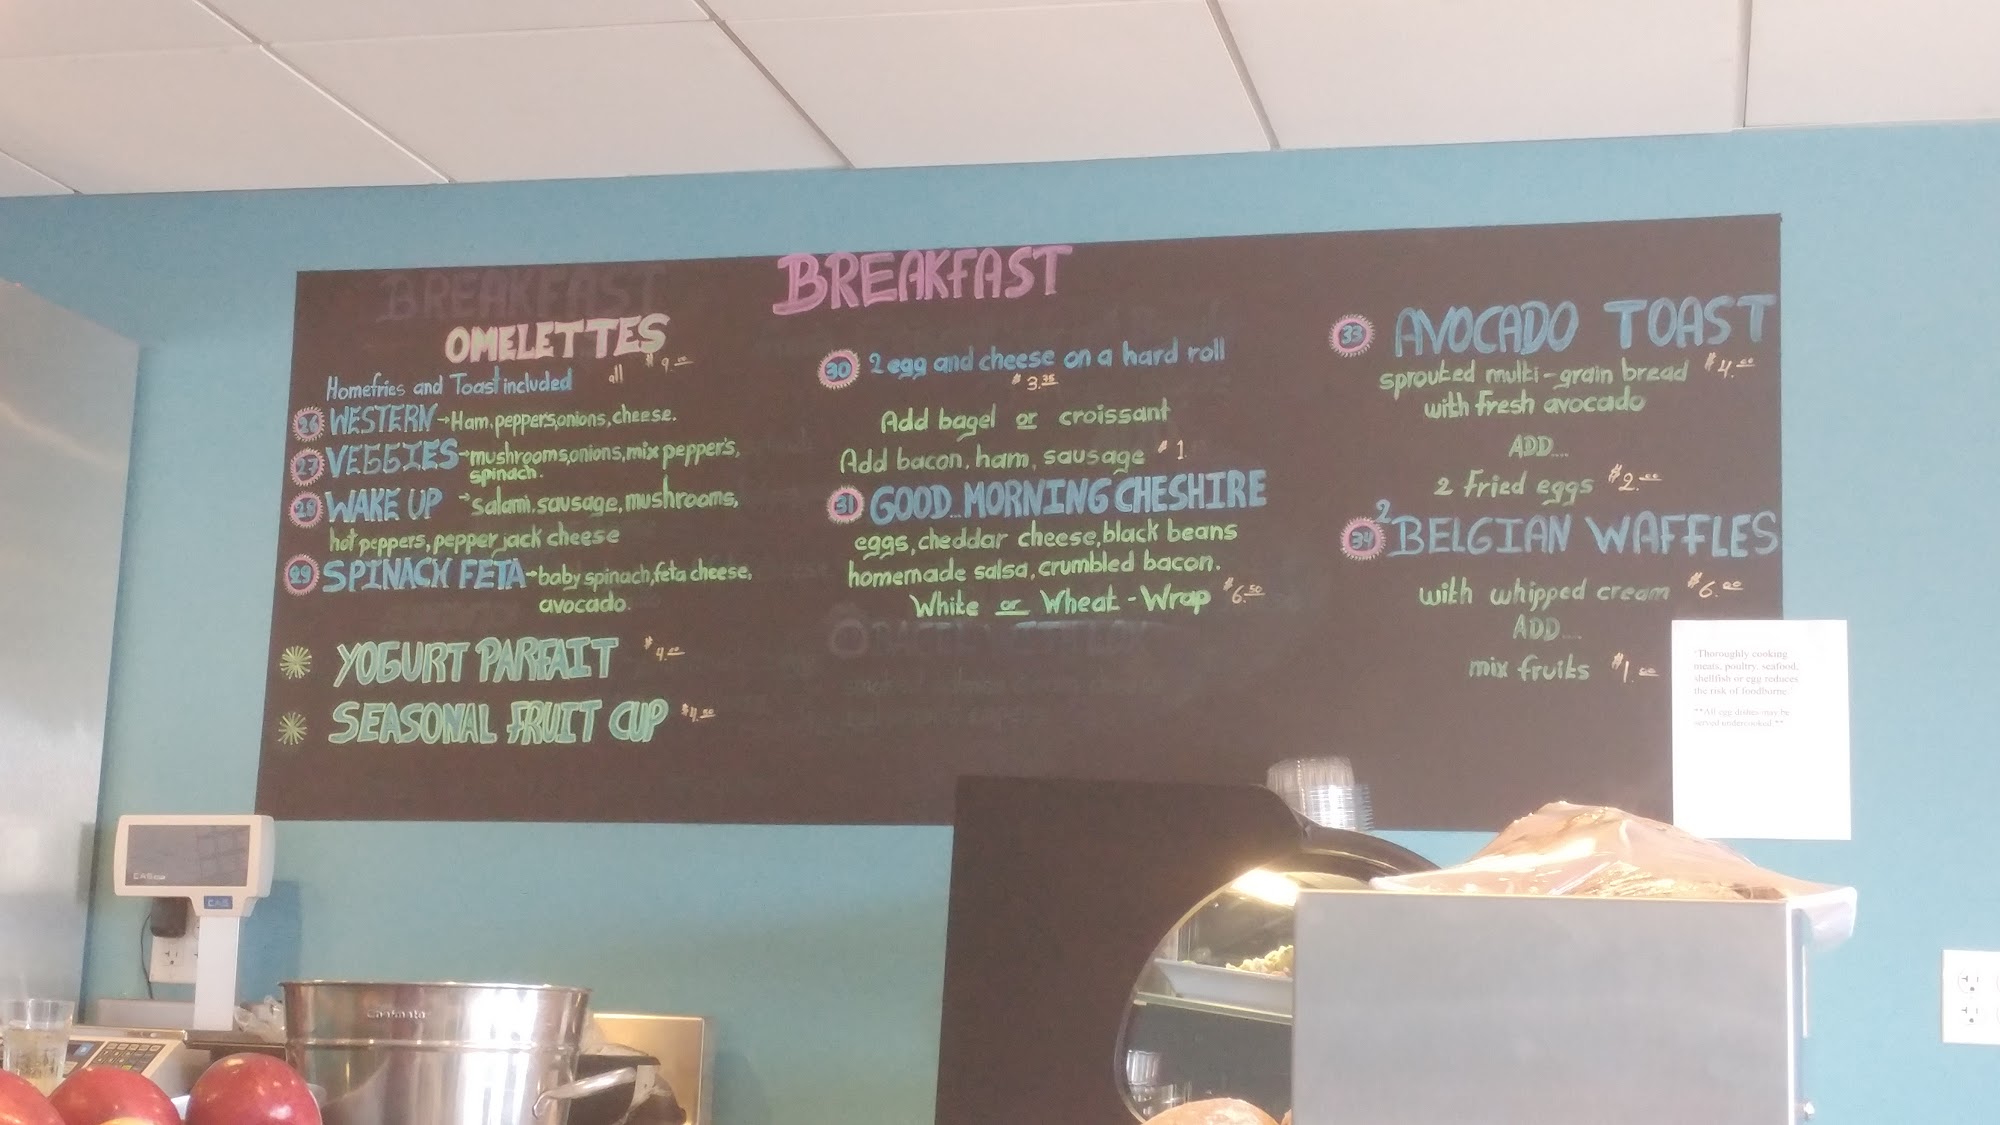 BREAKFAST
BREAKFAST
OMELETTES
all $9.00
Homefries and Toast included
26 WESTERN → Ham, peppers, onions, cheese.
27 VEGGIES → mushrooms, onions, mix pepper's,
spinach.
28 WAKE UP → Salami, sausage, mushrooms,
hot peppers, pepper jack cheese
29 SPINACH FETA → baby spinach, feta cheese,
avocado.
YOGURT PARFAIT $4.00
SEASONAL FRUIT CUP $4.50
30 2 egg and cheese on a hard roll
Add bagel or croissant
Add bacon, ham, sausage $1
31 GOOD...MORNING CHESHIRE
eggs, cheddar cheese, black beans
homemade salsa, crumbled bacon.
White or Wheat - Wrap $6.50
33 AVOCADO TOAST
sprouted multi-grain bread $4.00
with fresh avocado
ADD....
2 fried eggs $2.00
34 2 BELGIAN WAFFLES
with whipped cream $6.00
ADD....
mix fruits $1.00
"Thoroughly cooking
meats, poultry, seafood,
shellfish or egg reduces
the risk of foodborne."
**All egg dishes may be
served undercooked.**
CAS
CAS